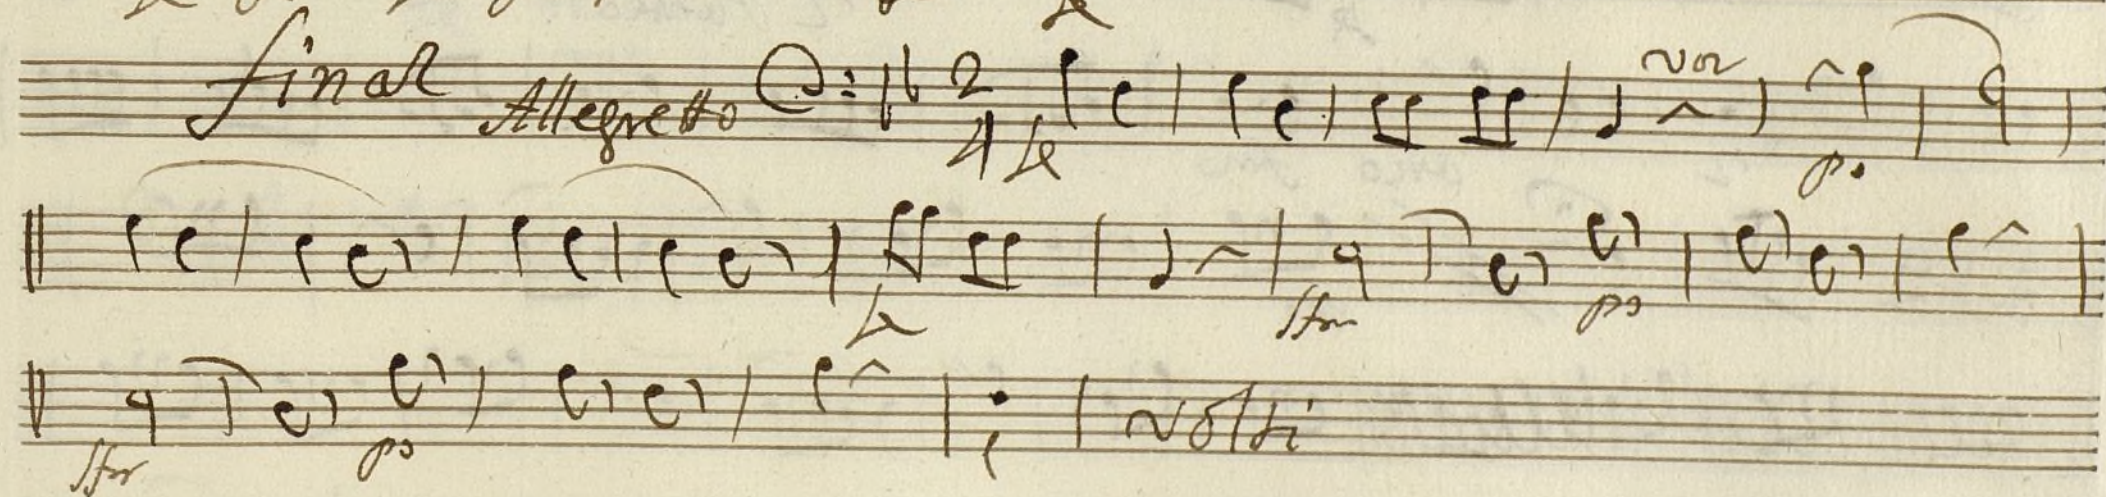 final Allegretto 2 4 voz
po
sfor po
sfor po volti